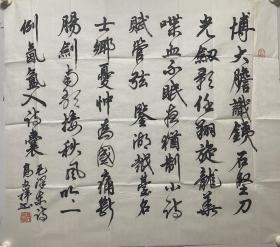 博大膽識鐵石堅刀
光劍影任翔旋龍華
喋血不眠夜猶制小詩
賦管弦 鑒湖越臺名
士鄉憂忡為國痛斷
腸劍南歌接秋風吟一
例氤氲入詩囊 毛澤東詩